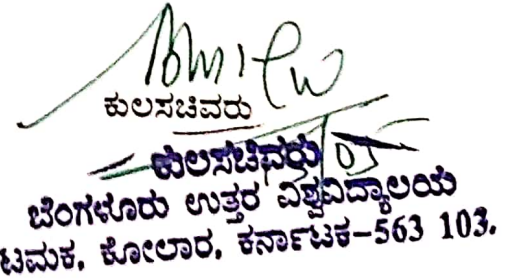 ಕುಲಸಚಿವರು
ಕುಲಸಚಿವರು
ಬೆಂಗಳೂರು ಉತ್ತರ ವಿಶ್ವವಿದ್ಯಾಲಯ
ಟಮಕ, ಕೋಲಾರ, ಕರ್ನಾಟಕ-563 103.